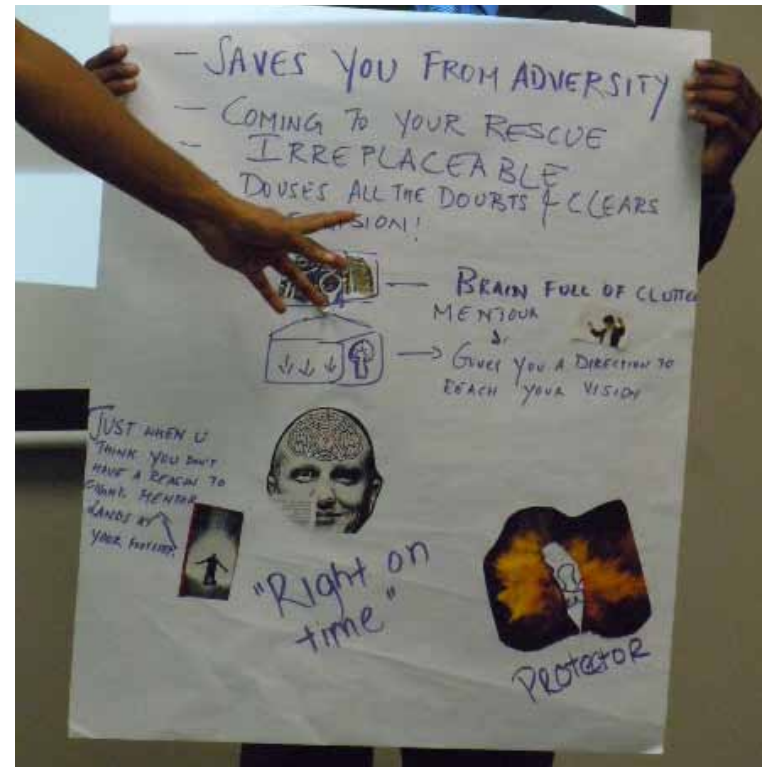 - SAVES YOU FROM ADVERSITY
- COMING TO YOUR RESCUE
- IRREPLACEABLE
DOUSES ALL THE DOUBTS & CLEARS
VISION!
BRAIN FULL OF CLUTTER
MENTOUR
GIVES YOU A DIRECTION TO
REACH YOUR VISION
JUST WHEN U
THINK YOU DON'T
HAVE A REASON TO
FIGHT. MENTOR
LANDS AT
YOUR
"Right on
time"
PROTECTOR